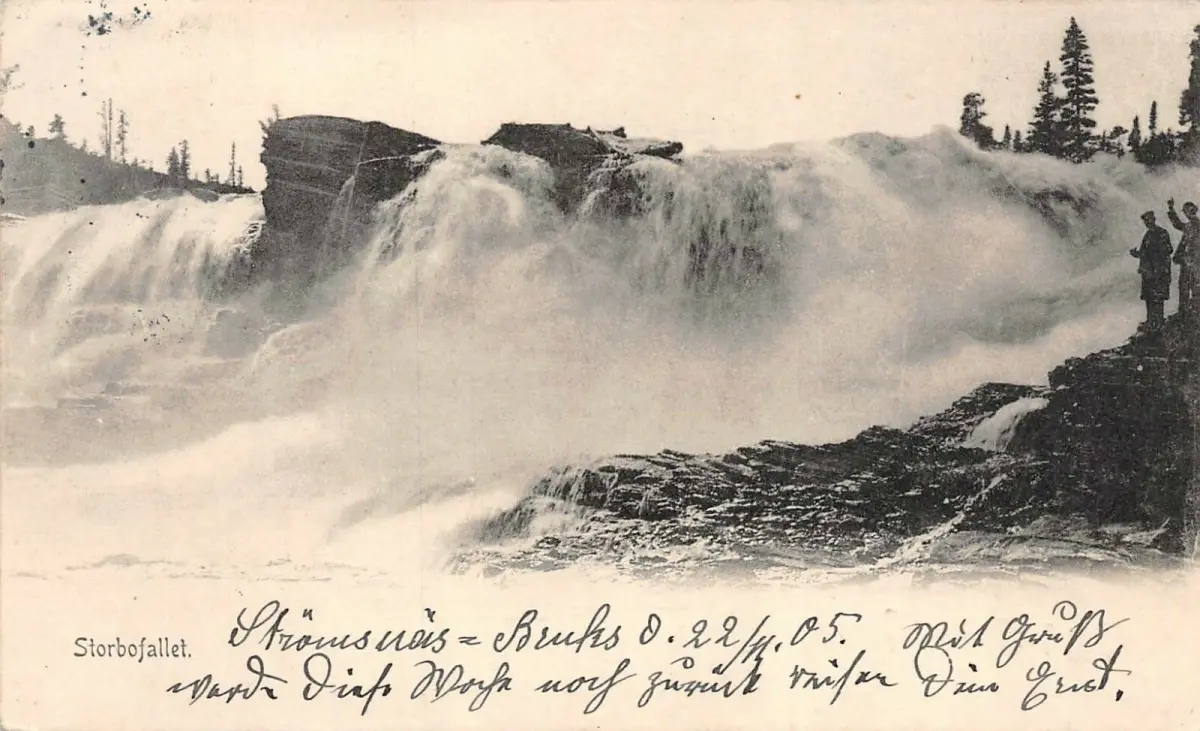 Storbofallet.
Strömsnäs = Bruks d. 22/4. 05. Mit Gruß
werde diese Woche noch zurück reisen Dein Ernst.